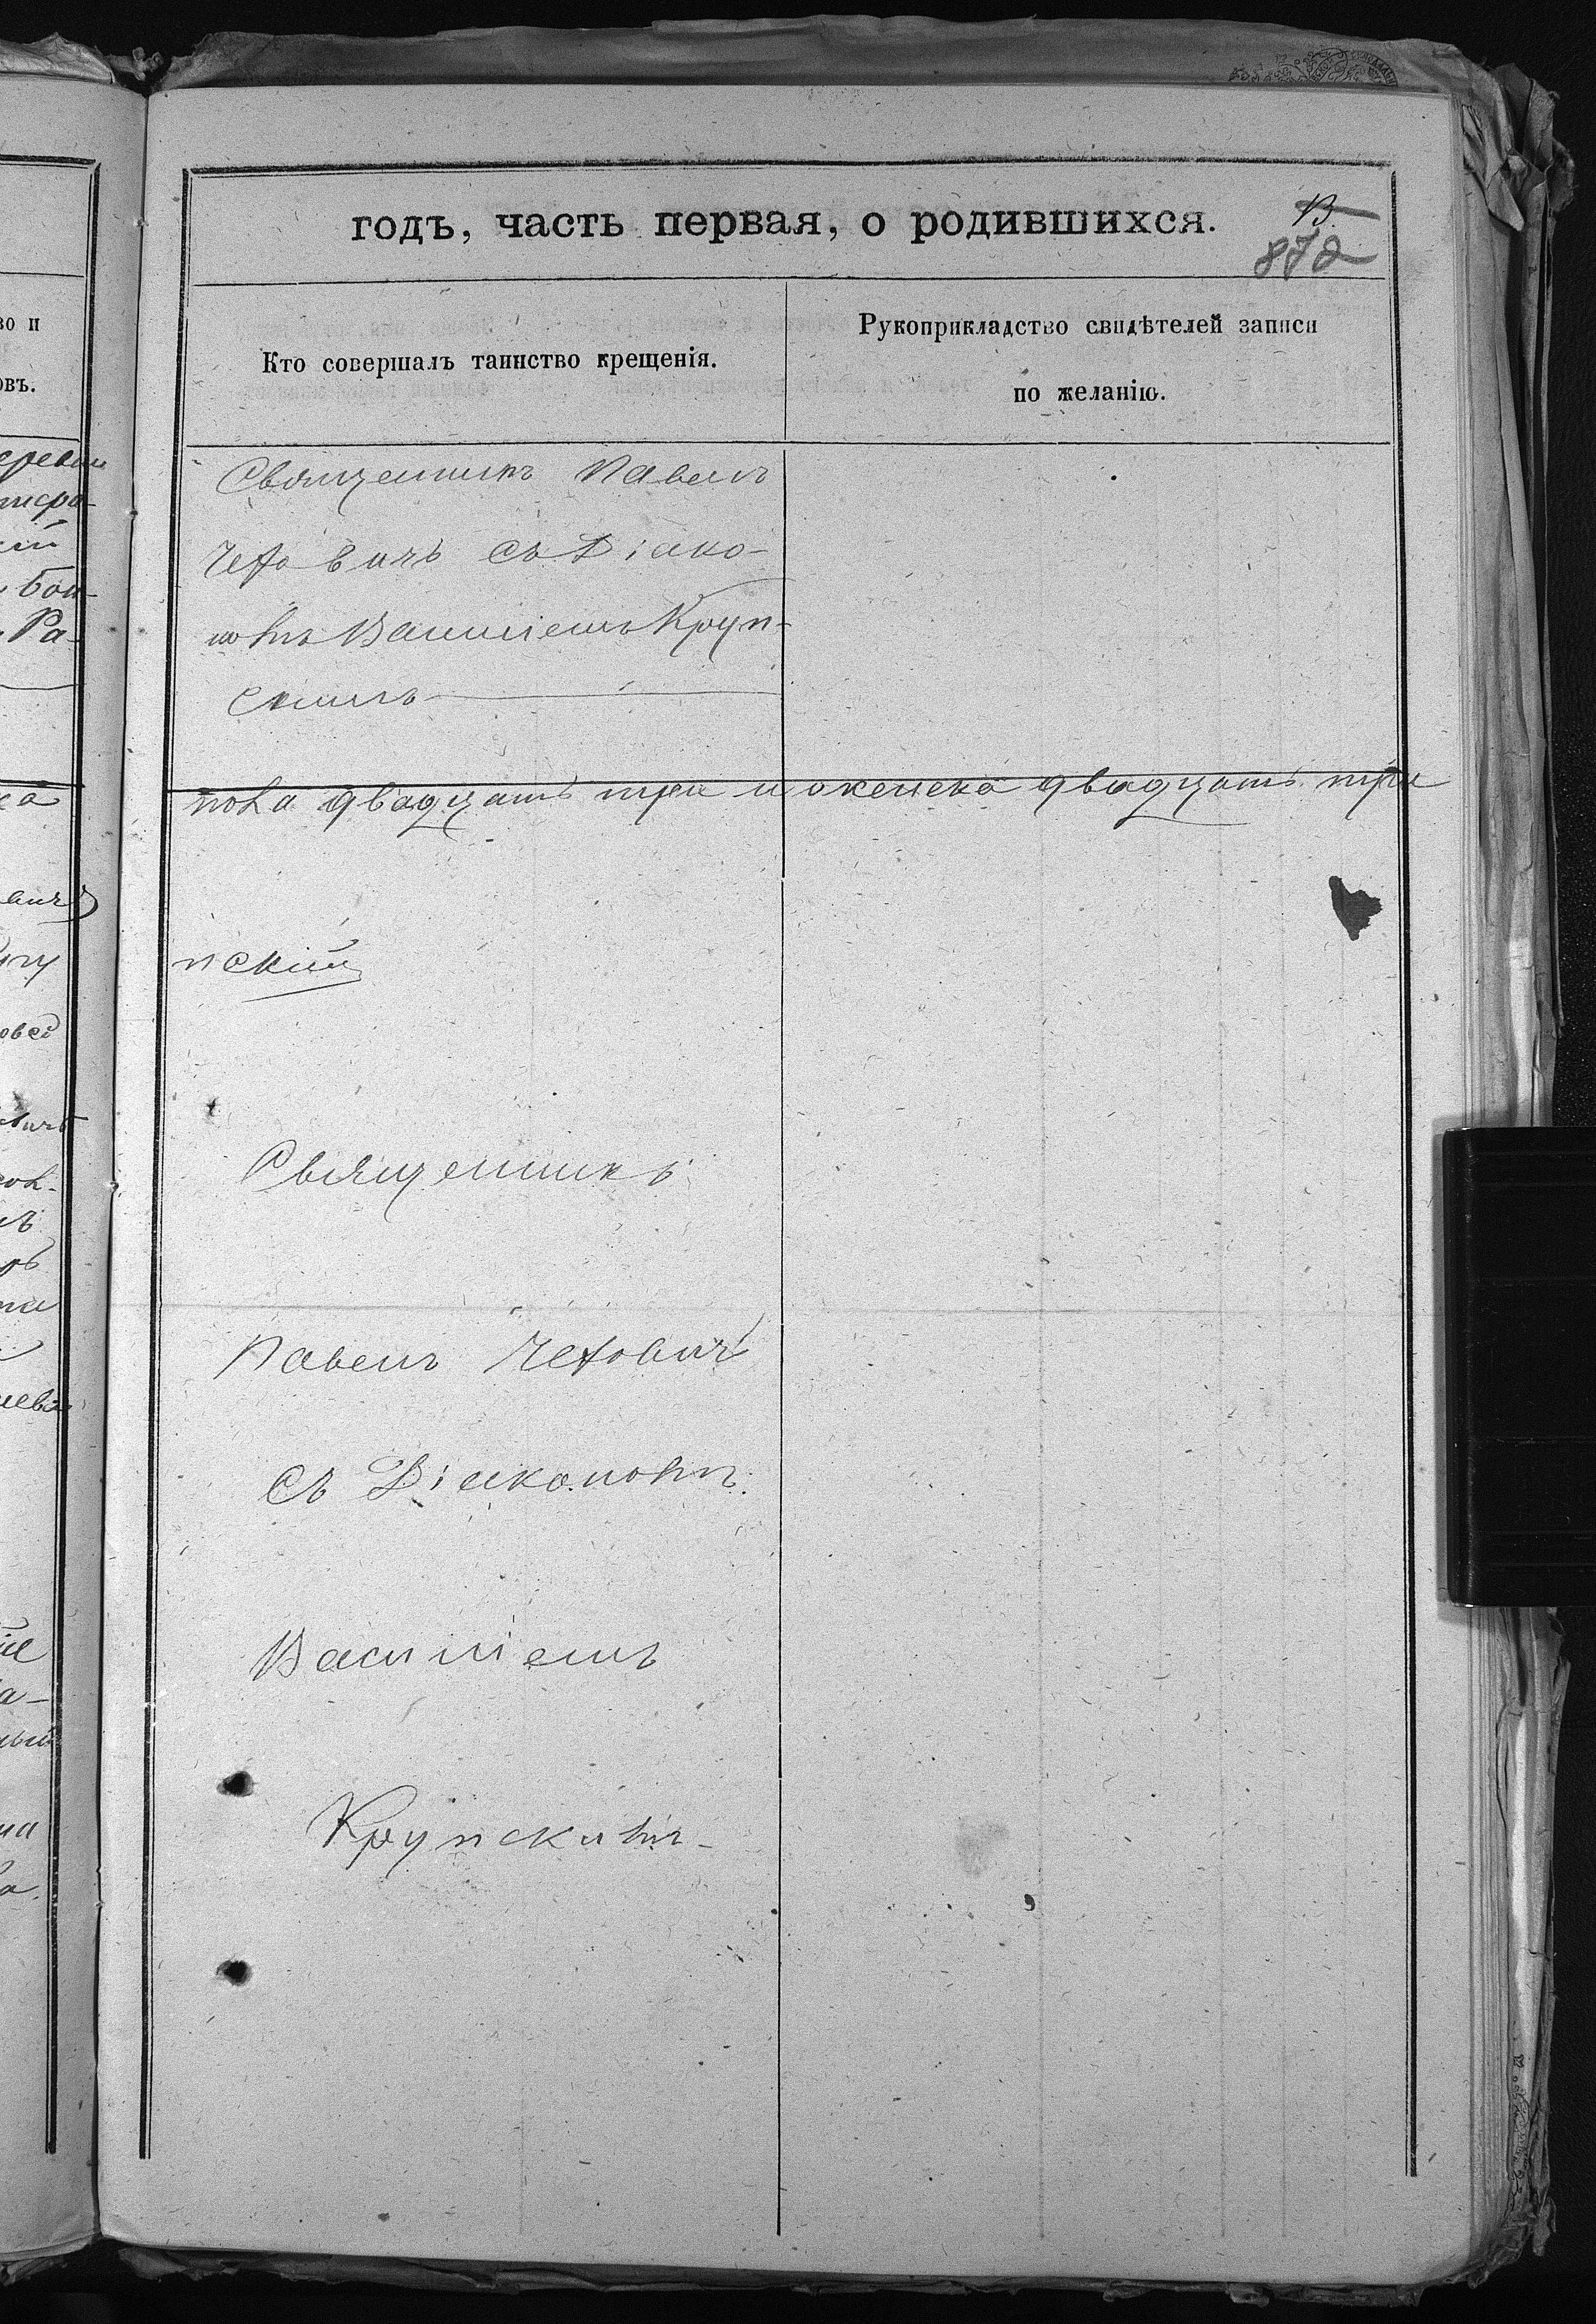 годъ, часть первая, о родившихся.
13
872
Кто совершалъ таинство крещенія.
Рукоприкладство свидѣтелей записи
по желанію.
во и
овъ.
Священникъ Павелъ
Чеховичъ съ Діако-
номъ Василіемъ Круп-
скимъ
пола двадцать три и женска двадцать три
пскій
Священникъ
Павелъ Чеховичъ
съ Діакономъ
Василіемъ
Крупскимъ